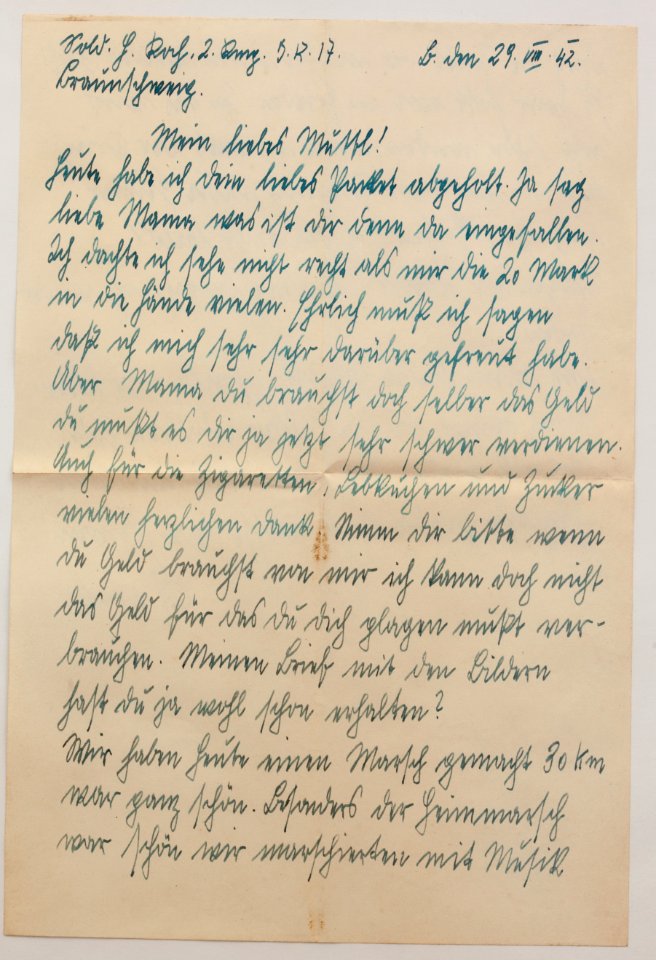 Sold. H. Koch. 2. Komp. J. R. 17. B. den 29. VIII. 42.
Braunschweig.
Mein liebes Muttl!
Heute habe ich dein liebes Packet abgeholt. Ja sag
liebe Mama was ist dir denn da eingefallen.
Ich dachte ich sehe nicht recht als mir die 20 Mark
in die Hände vielen. Ehrlich muß ich sagen
daß ich mich sehr sehr darüber gefreut habe.
Aber Mama du brauchst doch selber das Geld
du mußt es dir ja jetzt sehr schwer verdienen.
Auch für die Zigaretten, Lebkuchen und Zucker
vielen herzlichen Dank. Nimm dir bitte wenn
du Geld brauchst von mir ich kann doch nicht
das Geld für das du dich plagen mußt ver-
brauchen. Meinen Brief mit den Bildern
hast du ja wohl schon erhalten?
Wir haben heute einen Marsch gemacht 30 km
war ganz schön. Besonders der Heimmarsch
war schön wir marschierten mit Musik